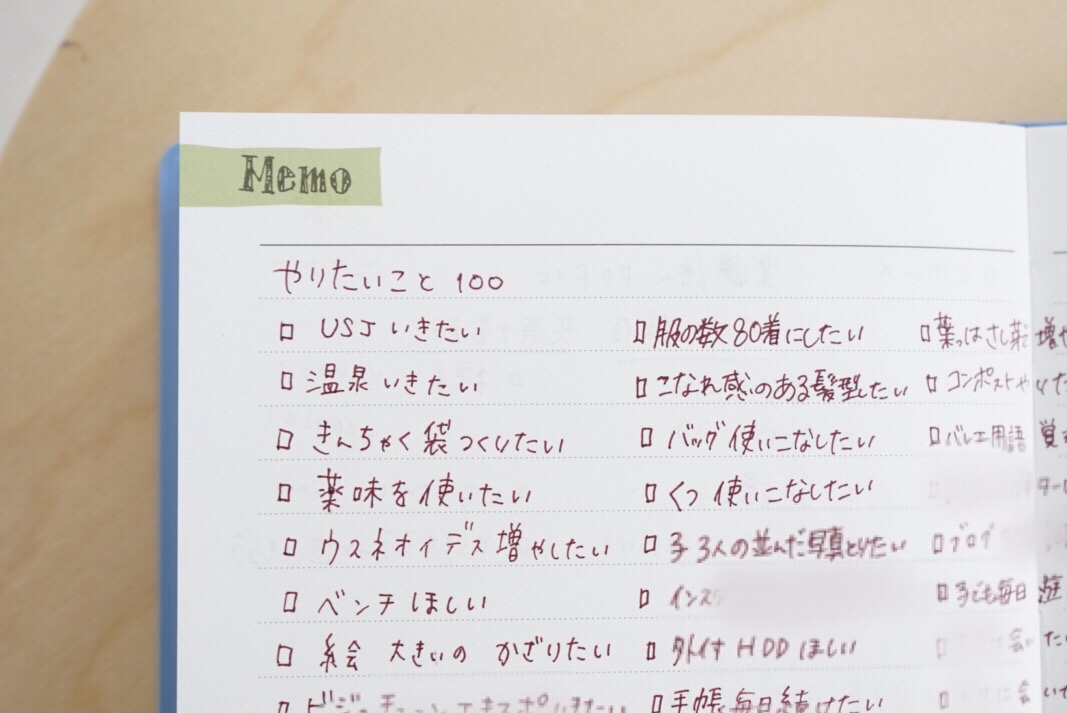 Memo
やりたいこと 100
□ USJ いきたい
□ 温泉いきたい
□ きんちゃく袋つくりたい
□ 薬味を使いたい
□ ウスネオイデス増やしたい
□ ベンチほしい
□ 絵 大きいの かざりたい
□ 服の数80着にしたい
□ こなれ感のある髪型したい
□ バッグ使いこなしたい
□ くつ使いこなしたい
□ 子3人の並んだ写真とりたい
□ インスタ
□ 外付HDDほしい
□ 手帳毎日続けたい
□ 葉っぱさし芽 増や
□ コンポストや
□ バレエ用語 覚え
□ ブログ
□ 子ども毎日 遊